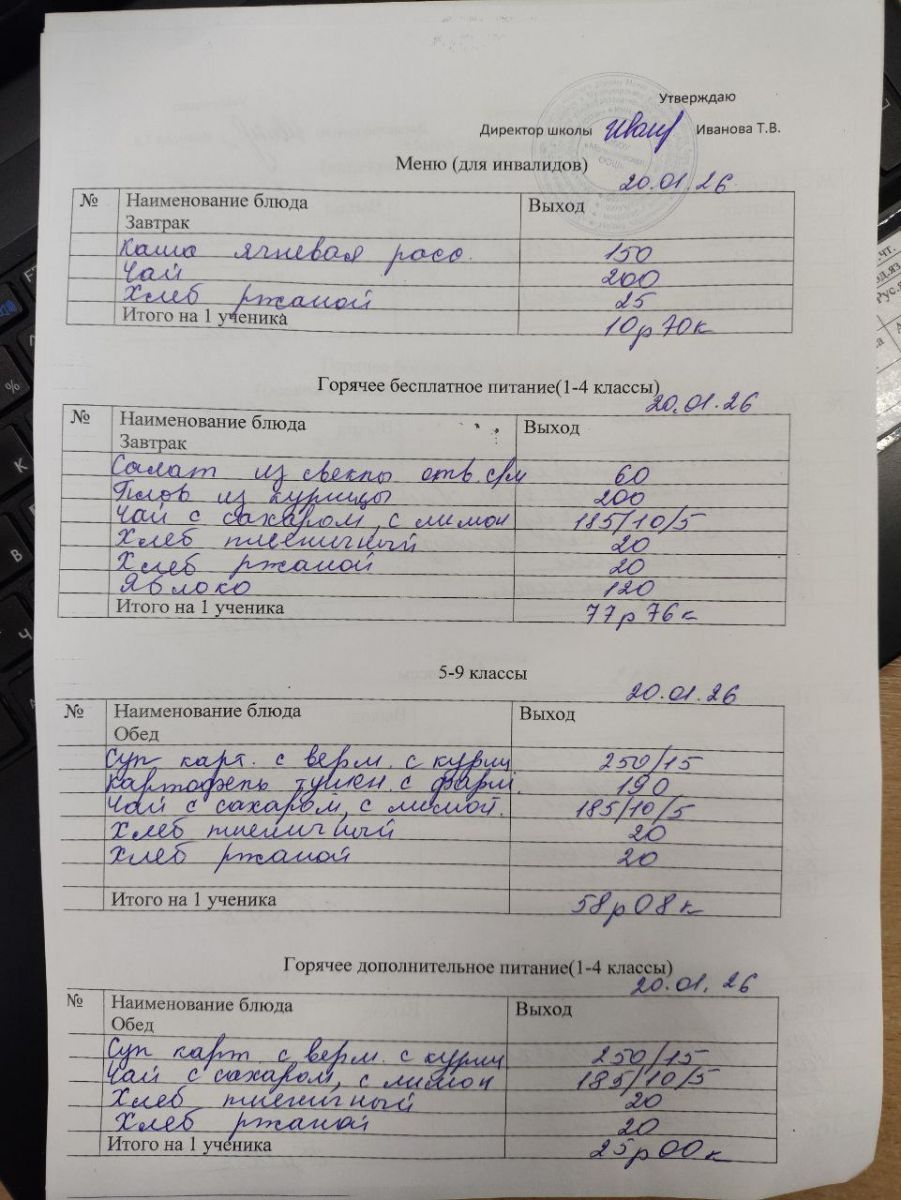 Утверждаю
Директор школы Иванова Т.В.
Меню (для инвалидов)
20.01.26
№ Наименование блюда Выход
Завтрак
Каша ячневая расс. 150
Чай 200
Хлеб ржаной 25
Итого на 1 ученика 10р70к
Горячее бесплатное питание(1-4 классы)
20.01.26
№ Наименование блюда Выход
Завтрак
Салат из свеклы отв. с р/м 60
Плов из курицы 200
Чай с сахаром, с лимон 185/10/5
Хлеб пшеничный 20
Хлеб ржаной 20
Яблоко 120
Итого на 1 ученика 77р76к
5-9 классы
20.01.26
№ Наименование блюда Выход
Обед
Суп карт. с верм. с куриц 250/15
Картофель тушен. с фарш. 190
Чай с сахаром, с лимон. 185/10/5
Хлеб пшеничный 20
Хлеб ржаной 20
Итого на 1 ученика 58р08к
Горячее дополнительное питание(1-4 классы)
20.01.26
№ Наименование блюда Выход
Обед
Суп карт с верм. с куриц 250/15
Чай с сахаром, с лимон 185/10/5
Хлеб пшеничный 20
Хлеб ржаной 20
Итого на 1 ученика 25р00к